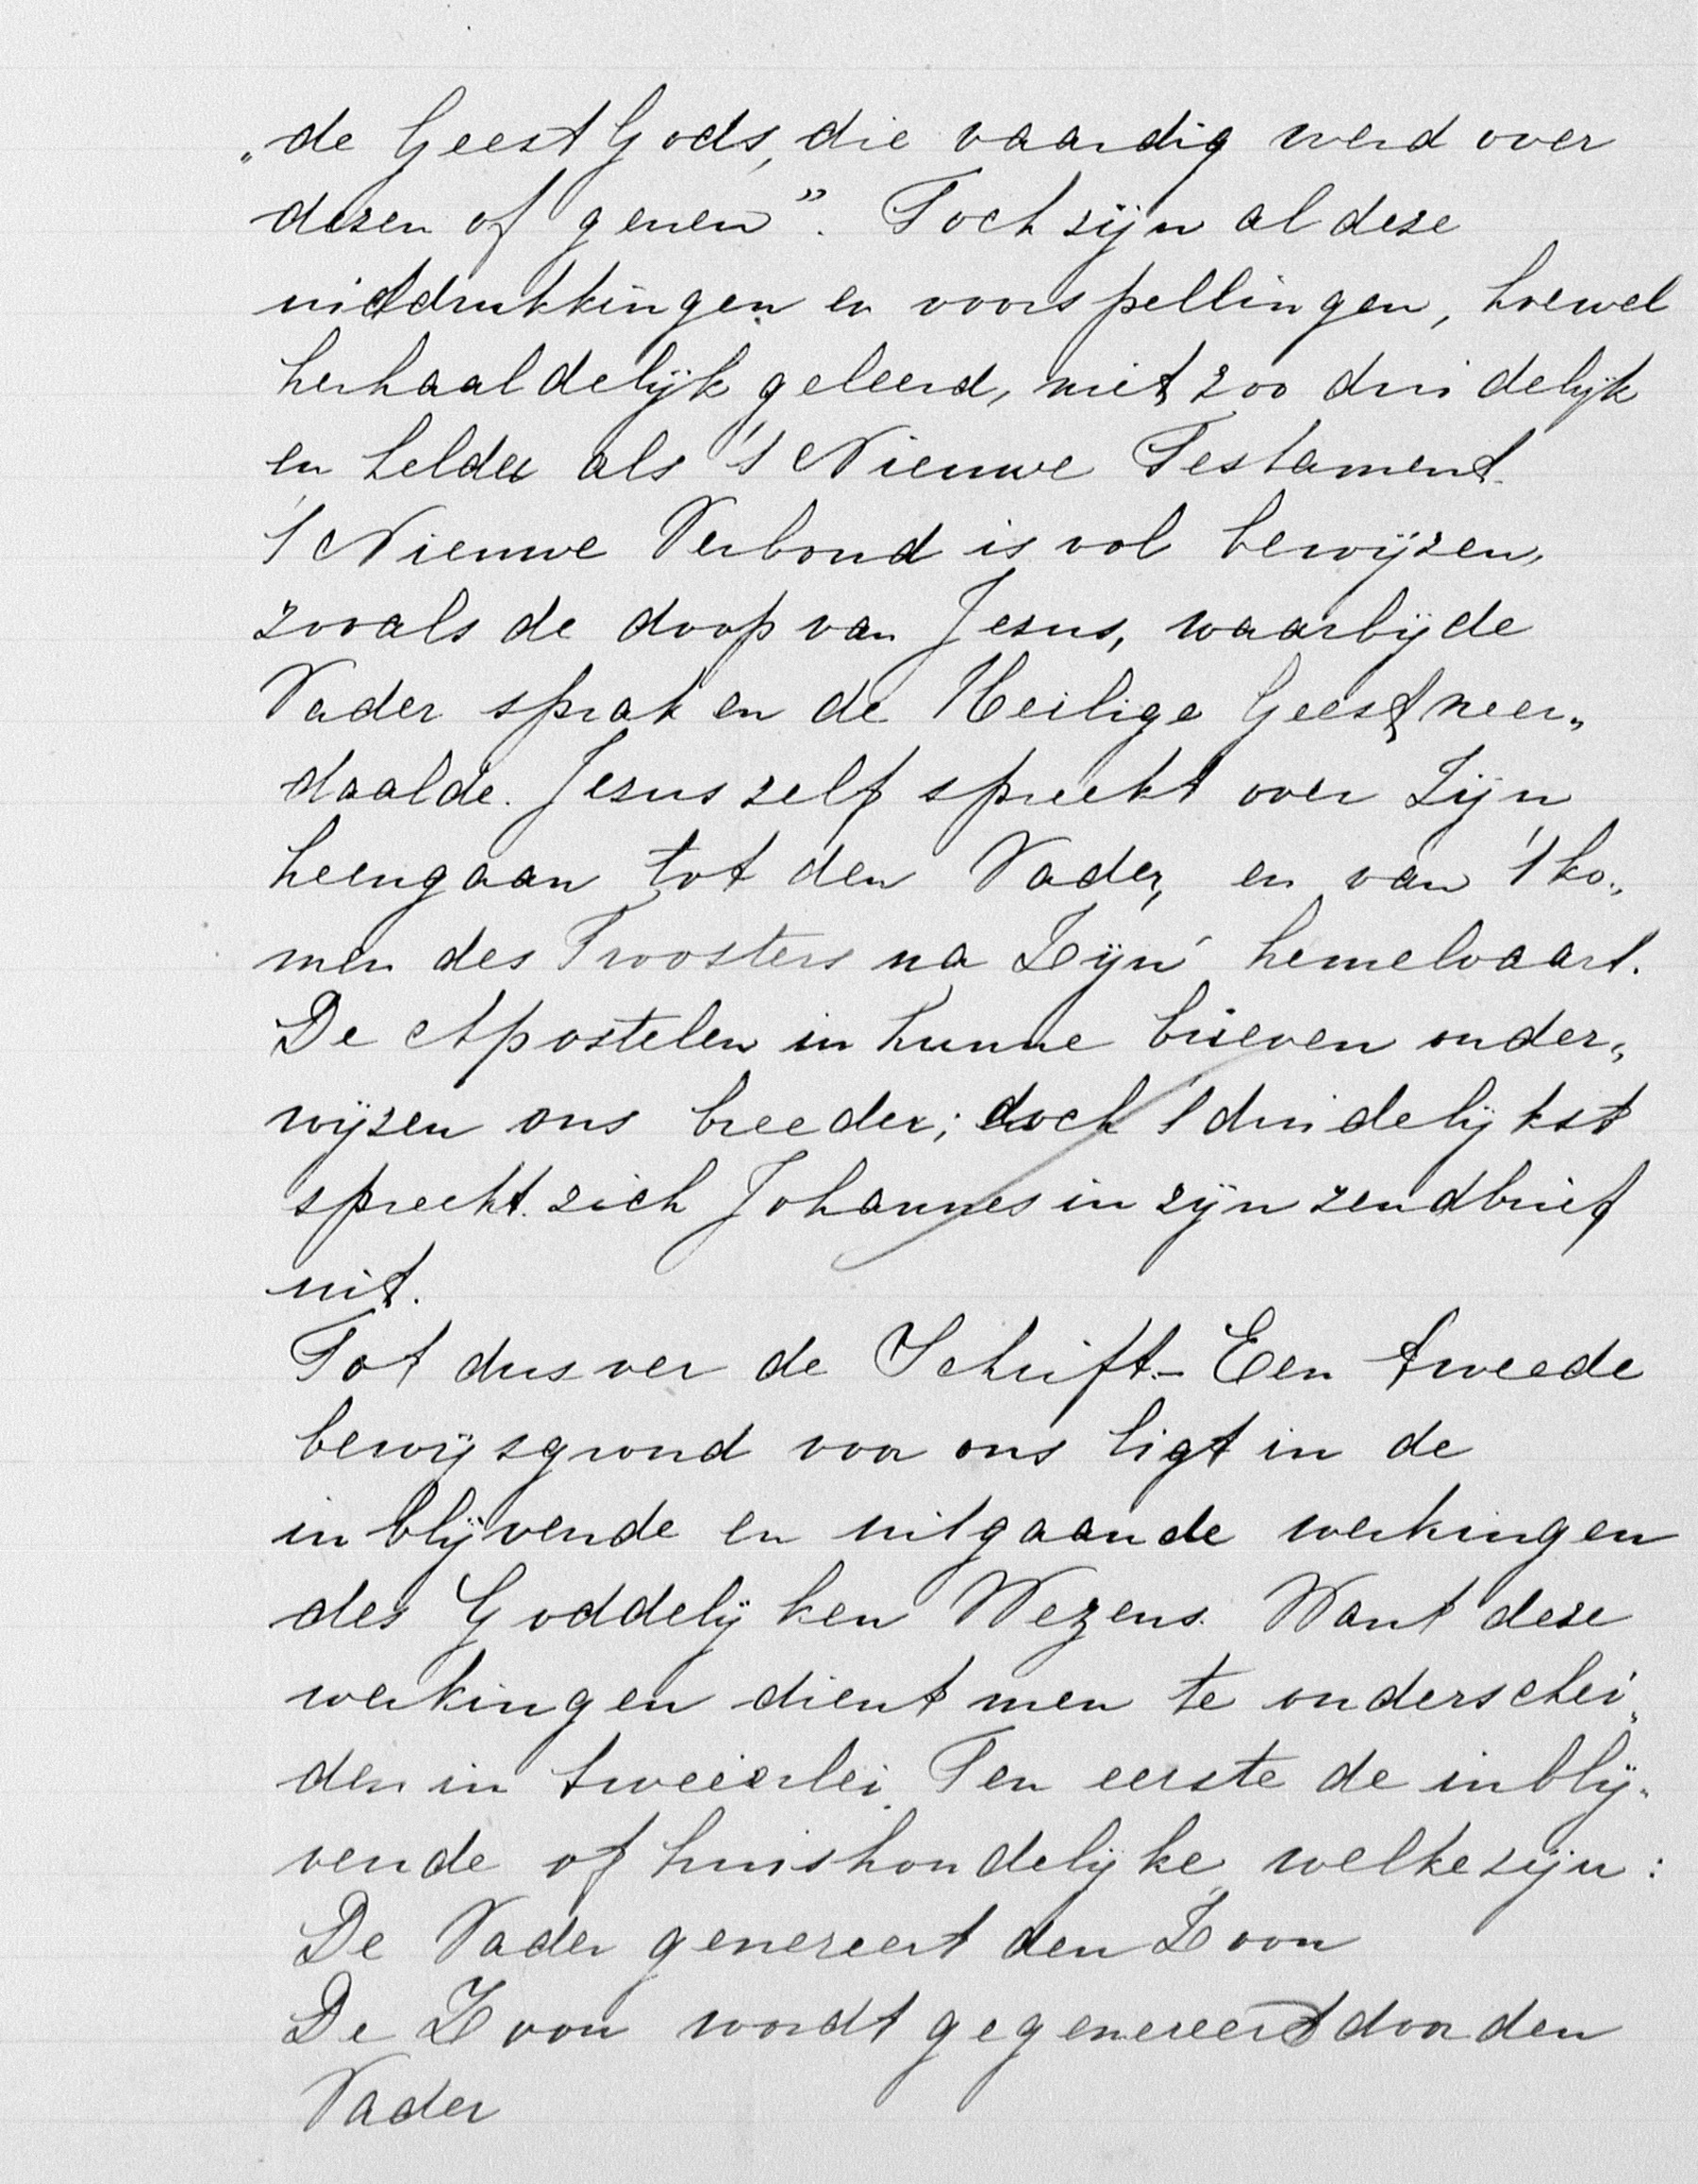 „de Geest Gods, die vaardig werd over
dezen of genen”. Toch zijn al deze
uitdrukkingen en voorspellingen, hoewel
herhaaldelijk geleerd, niet zoo duidelijk
en helder als 't Nieuwe Testament.
't Nieuwe Verbond is vol bewijzen,
zooals de doop van Jezus, waarbij de
Vader sprak en de Heilige Geest neer„
daalde. Jezus zelf spreekt over Zijn
heengaan tot den Vader, en van 't ko„
men des Troosters na Zijn hemelvaart.
De Apostelen in hunne brieven onder„
wijzen ons breeder; doch 't duidelijkst
spreekt zich Johannes in zijn zendbrief
uit.
Tot dusver de Schrift.- Een tweede
bewijsgrond voor ons ligt in de
inblijvende en uitgaande werkingen
des Goddelijken Wezens. Want deze
werkingen dient men te onderschei„
den in tweeërlei. Ten eerste de inblij„
vende of huishoudelijke, welke zijn:
De Vader genereert den Zoon
De Zoon wordt gegenereerd door den
Vader